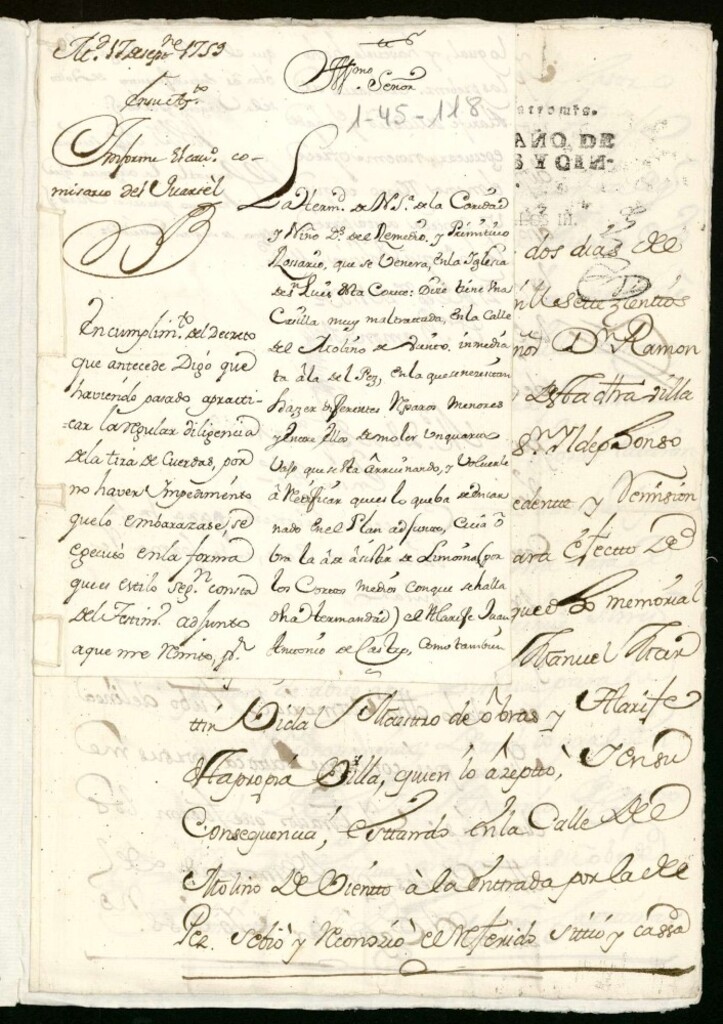 M.d 17 de sepre 1759
en su Ayto
Informe el cavo. co-
misario del Quartel
En cumplimto del Decreto
que antecede Digo que
haviendo pasado apracti-
-car la regular diligencia
de la tira de Cuerdas, por
no haver Impedimento
que lo embarazase, se
egecutó en la forma
que es estilo segn consta
del Testimo. adjunto
aque me remito, pr.
Illmo. Señor
1-45-118
La Herm.d de N.S.a de la Corredad
y Niño Ds. del Remedio, y Primitivo
Rossario, que se Venera, en la Iglesia
de Sn Luis
Dize tiene una
Casilla muy maltratada, en la Calle
del Molino de Viento, inmedia
ta â la del Pez, en la que se necesitan
hazer diferentes Reparos Menores
y entre ellos demoler un quarto
vajo que se sta Arruinando, y volverle
â redificar que es lo que ba de encar
nado en el Plan adjunto, Cuia ô
bra la â de âsistir de Limosna (por
los Cortos medios con que se halla
dha Hermandad) el Alarife Juan
Antonio de Castro, como tambien
AÑO DE
S Y CIN-
dos dias del
mill setezientos
Dn Ramon
desta dha villa
Sn Yldephonso
cedente y Remision
para efecto de
que do memorial
Manuel Mar
tin Vicla Maestro de ôbras y Alarife
desta propia Villa, quien lo âzepttó, Y en su
Consequencia, estando en la Calle del
Molino de Vientto â la enttrada por la del
Pez. y reconozió el referido sittio y cassa